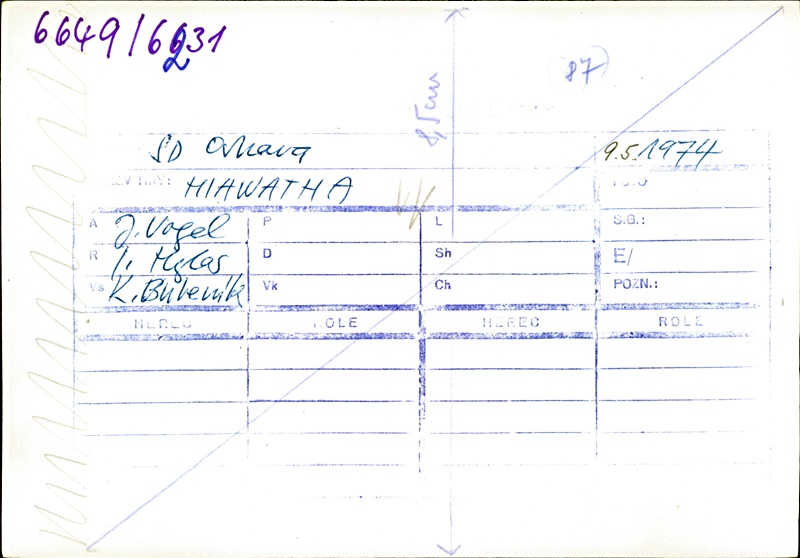 6649/6631
2
87
8,5cm
SD Ostrava
9.5.1974
HIAWATHA
A J. Vogel P L S.G.:
R I. Hylas D Sh E/
Vs K. Bubeník Vk Ch POZN.:
HEREC ROLE HEREC ROLE